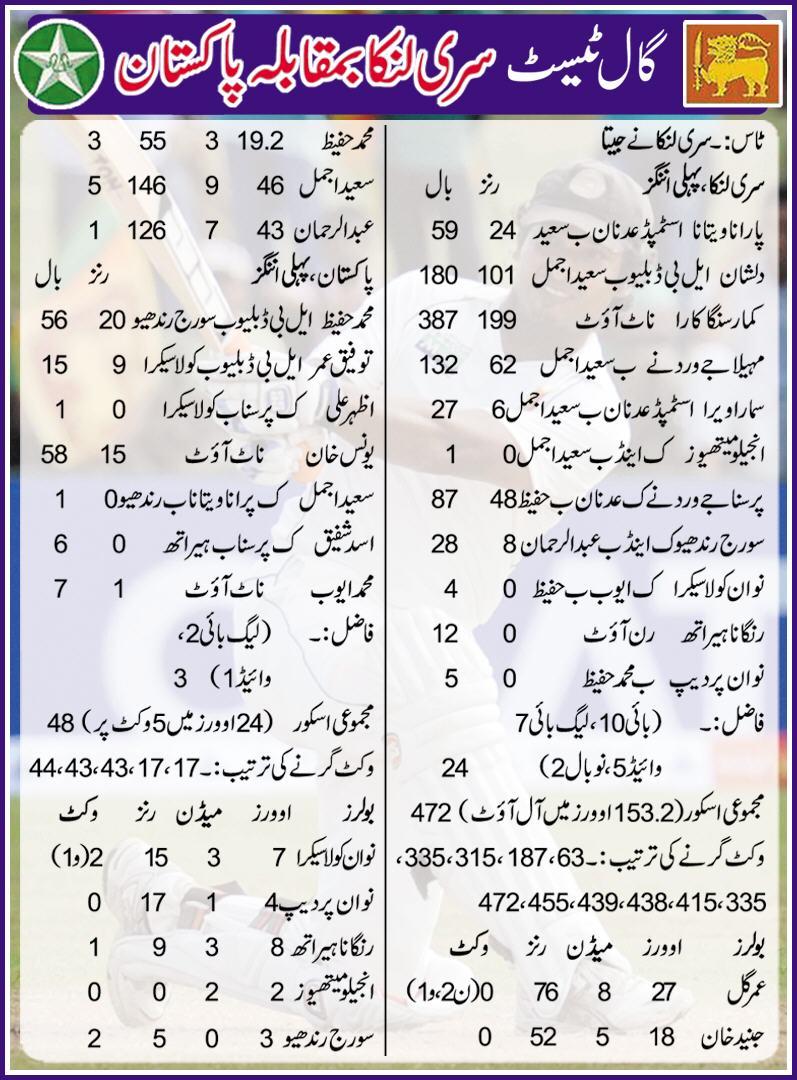 گال ٹیسٹ سری لنکا بمقابلہ پاکستان
ٹاس:۔ سری لنکا نے جیتا
سری لنکا، پہلی اننگز رنز بال
پاراناویتانا اسٹمپڈ عدنان ب سعید 24 59
دلشان ایل بی ڈبلیو ب سعید اجمل 101 180
کمار سنگاکارا ناٹ آؤٹ 199 387
مہیلا جے وردنے ب سعید اجمل 62 132
سماراویرا اسٹمپڈ عدنان ب سعید اجمل 6 27
انجیلو میتھیوز ک اینڈ ب سعید اجمل 0 1
پرسنا جے وردنے ک عدنان ب حفیظ 48 87
سورج رندھیو ک اینڈ ب عبدالرحمان 8 28
نوان کولاسیکرا ک ایوب ب حفیظ 0 4
رنگانا ہیراتھ رن آؤٹ 0 12
نوان پردیپ ب محمد حفیظ 0 5
فاضل:۔ (بائی 10، لیگ بائی 7
وائیڈ 5، نو بال 2) 24
مجموعی اسکور (153.2 اوورز میں آل آؤٹ) 472
وکٹ گرنے کی ترتیب:۔ 63، 187، 315، 335،
335، 415، 438، 439، 455، 472
بولرز اوورز میڈن رنز وکٹ
عمر گل 27 8 76 0 (ن2، و1)
جنید خان 18 5 52 0
محمد حفیظ 19.2 3 55 3
سعید اجمل 46 9 146 5
عبدالرحمان 43 7 126 1
پاکستان، پہلی اننگز رنز بال
محمد حفیظ ایل بی ڈبلیو ب سورج رندھیو 20 56
توفیق عمر ایل بی ڈبلیو ب کولاسیکرا 9 15
اظہر علی ک پرسنا ب کولاسیکرا 0 1
یونس خان ناٹ آؤٹ 15 58
سعید اجمل ک پراناویتانا ب رندھیو 0 1
اسد شفیق ک پرسنا ب ہیراتھ 0 6
محمد ایوب ناٹ آؤٹ 1 7
فاضل:۔ (لیگ بائی 2،
وائیڈ 1) 3
مجموعی اسکور (24 اوورز میں 5 وکٹ پر) 48
وکٹ گرنے کی ترتیب:۔ 17، 17، 43، 43، 44
بولرز اوورز میڈن رنز وکٹ
نوان کولاسیکرا 7 3 15 2 (و1)
نوان پردیپ 4 1 17 0
رنگانا ہیراتھ 8 3 9 1
انجیلو میتھیوز 2 2 0 0
سورج رندھیو 3 0 5 2